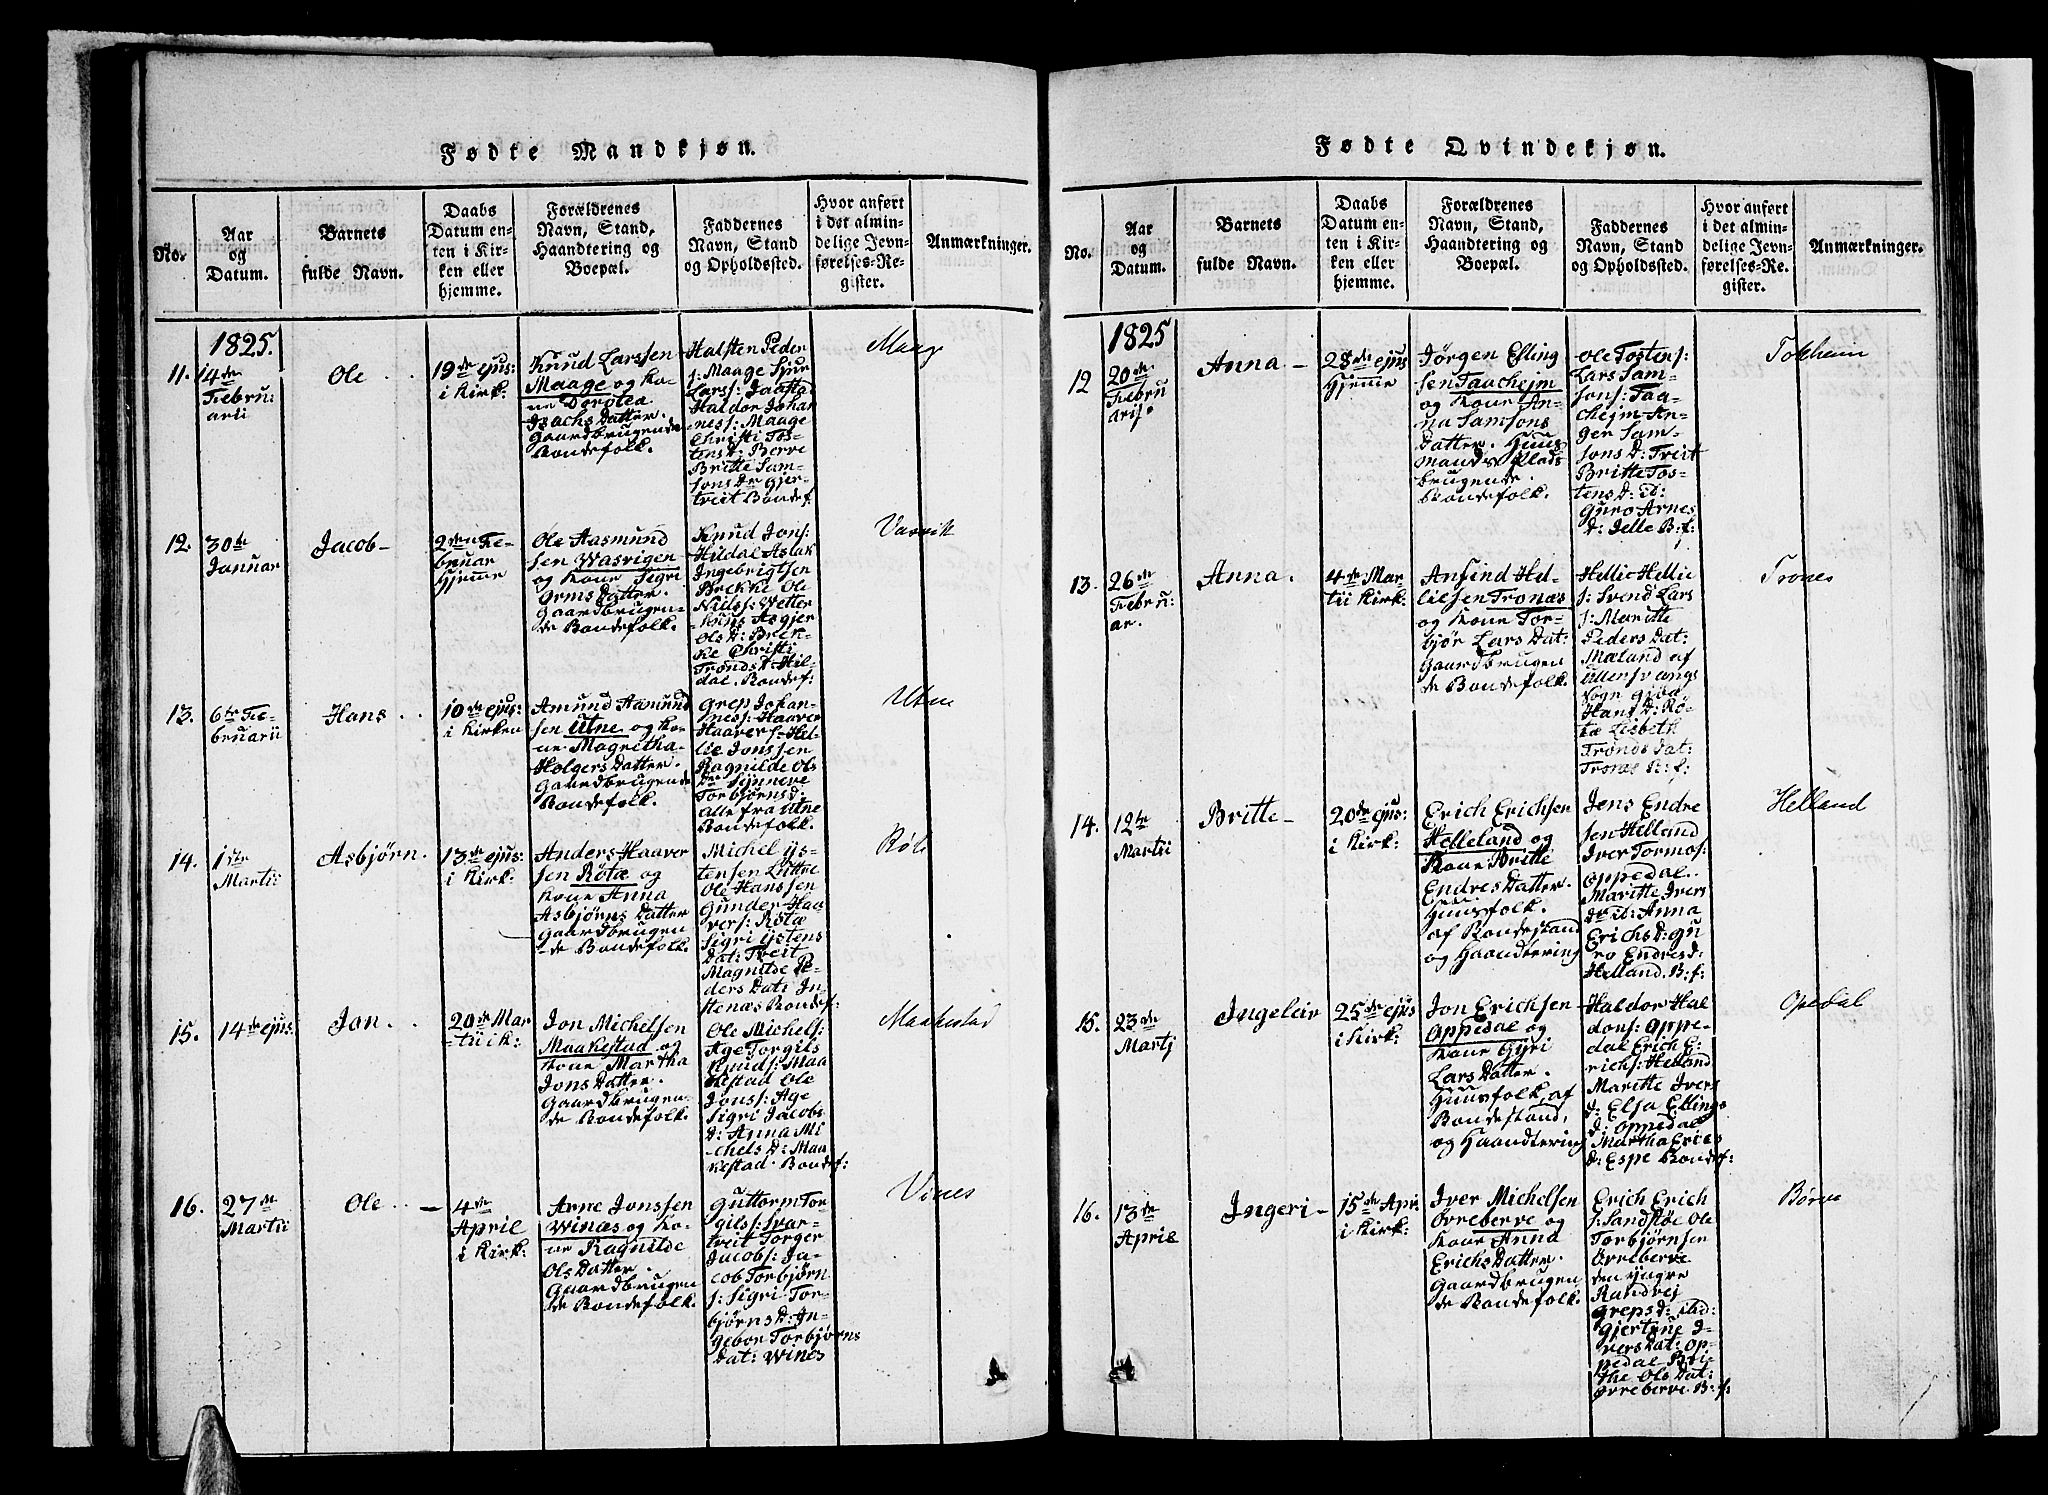 Fødte Mandkjøn.
No.
Aar
og
Datum.
Barnets
fulde Navn.
Daabs
Datum en-
ten i Kir-
ken eller
hjemme.
Forældrenes
Navn, Stand,
Haandtering og
Boepæl.
Faddernes
Navn, Stand
og Opholdssted.
Hvor anført
i det almin-
delige Jevn-
førelses-Re-
gister.
Anmærkninger.
1825.
11.
14de
Februarii
Ole
19de ejus:
i Kirk:
Knud Larssen
Maage og Ko-
ne Dorotea
Isachs Datter.
Gaardbrugende
Bondefolk.
Halsten Peder
s: Maage Sjur
Lars s: Jaastad
Haldor Johan
nes s: Maage
Christi Tos-
tens d: Berve
Britte Sam-
sons Dr Gjer-
tveit Bondef.
Maage
12.
30te
Januar
Jacob
2den Fe-
bruar
Hjemme
Ole Aasmund
sen Wasvigen
og Kone Sigri
Orms Datter.
Gaardbrugen-
de Bondefolk.
Knud Jons:
Hildal Aslak
Ingebrigtsen
Brekke Ole
Niels s: Wetter
Asgjer
Ols d: Brek-
ke Christi
Tronds d: Hil-
dal. Bondef:
Vasvik
13.
6te Fe-
bruarii
Hans
10de ejus:
i Kirken
Amund Aamund
sen Utne og Ko-
ne Magretha
Holgers Datter.
Gaardbrugende
Bondefolk.
Grep Johan-
nes s: Haaver
Haavers: Hel-
lie Jonssen
Ragnilde Ols
Dr Synneve
Torbjørns d:
Alle fra Utne
Bondefolk.
Utne
14.
1ste
Martii
Asbjørn.
13de ejus:
i Kirk:
Anders Haaver
sen Røtæ og
Kone Anna
Asbjørns Datter
Gaardbrugen
de Bondefolk.
Michel Ys-
tensen Luttre
Ole Hanssen
Gunder Haa
vers: Røtæ
Sigri Ystens
Dat: Tveit
Magnilde Pe-
ders Dat: In-
stenæs Bondef:
15.
14de ejus:
Jon
20de Mar
tii i K:
Jon Michelsen
Maakestad og
Kone Martha
Jons Datter.
Gaardbrugen-
de Bondefolk.
Ole Michels:
Age Torgils
Knuds: Maa
kestad Ole
Jons s: Age
Sigri Jacobs
d: Anna Mi
chels d: Maa
kestad. Bondef:
Maakestad
16.
27de
Martii
Ole
4de
April
i Kirk:
Arne Jonssen
Winæs og Ko-
ne Ragnilde
Ols Datter.
Gaardbrugen
de Bondefolk.
Guttorm Tor-
gils s: Svar-
tveit Torger
Jacobs: Ja-
cob Torbjørn
s: Sigri Tor-
bjørns d: In-
gebor Torbjørns
Dat: Wines
Vines
Fødte Qvindekjøn.
No.
Aar
og
Datum.
Barnets
fulde Navn.
Daabs
Datum en-
ten i Kir-
ken eller
hjemme.
Forældrenes
Navn, Stand,
Haandtering og
Boepæl.
Faddernes
Navn, Stand
og Opholdssted.
Hvor anført
i det almin-
delige Jevn-
førelses-Re-
gister.
Anmærkninger.
1825
12
20de
Febru
aris.
Anna
23de ejus
Hjemme
Jørgen Elling
sen Taachejm
og Kone An-
na Samsons
Datter. Huus
mands Plads
brugende.
Bondefolk.
Ole Tostens:
Lars Sam-
sons: Taa-
chejm An-
ger Sam-
sons d: Treit
Britte Tos-
tens d: id:
Guro Arnes
d: Jelle B:f:
Tokheim
13.
26de
Febru:
ar.
Anna.
4de Mar-
tii Kirk:
Ansind Hel-
liesen Tronæs
og Kone Tor-
bjør Lars Dat:
Gaardbrugen
de Bondefolk.
Hellie Hellie
s: Svend Lars
s: Maritte
Peders Dat:
Mæland af
Ullensvangs
Sogn
Hans d: Rø-
tæ Lisbeth
Tronds Dat:
Tronæs B:f:
Trones
14.
12te
Martii
Britte
20de ejus:
i Kirk:
Erich Erichsen
Helleland og
Kone Britte
Endres Datter.
Huusfolk.
af Bondestand
og Haandtering
Jens Endre
sen Helland
Iver Tormos:
Oppedal.
Maritte Ivers
Dr id: Anna
Erichs d: Gu
ro Endres d:
Helland. B:f:
Helland
15.
23de
Martj
Ingeleiv
25de ejus
i Kirk:
Jon Erichsen
Oppedal og
Kone Gyri
Lars Datter.
Huusfolk, af
Bondestand,
og Haandtering
Haldor Hal
dons: Oppe-
dal Erich E-
richs: Helland
Maritte Ivers
d: Elsa Ellings
d: Oppedal
Martha Erics
d: Espe Bondef:
Opedal
16.
13te
April
Ingeri
15de Apr.
i Kirk:
Iver Michelsen
Øvreberve og
Kone Anna
Erichs Datter.
Gaardbrugen
de Bondefolk.
Erich Erich
s: Sandstøe Ole
Torbjørnsen
Øvreberve
den Yngre
Randvej
Greps d: ibid:
Gjertrue I-
vers Dat: Op-
pedal Bri-
the Ols Dat:
Øvreberve B:f:
Børve